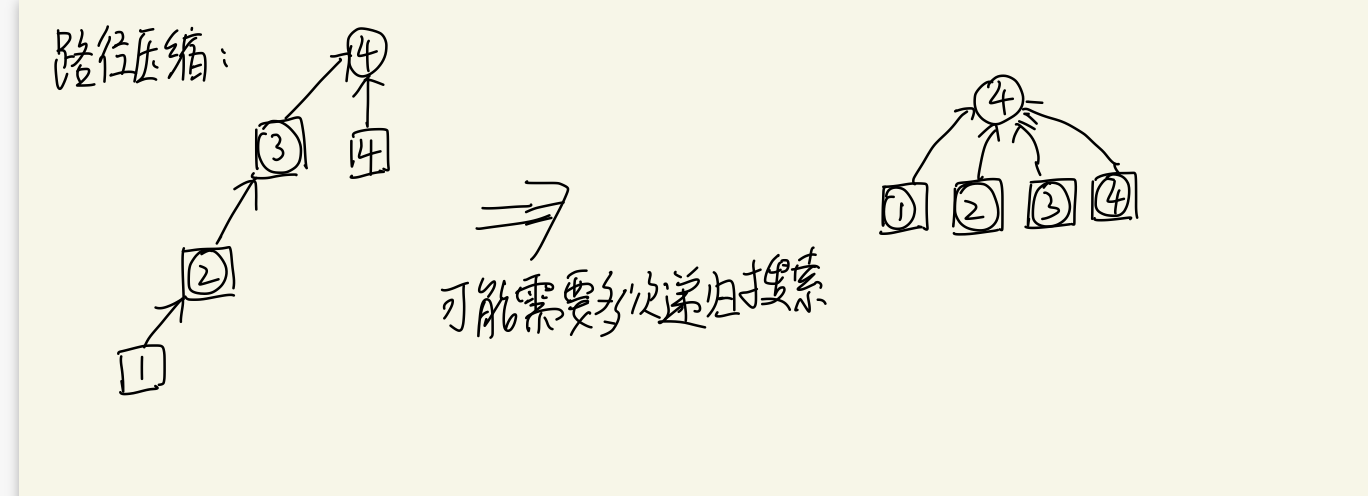 路径压缩：
④
③
4
②
1
可能需要多次递归搜索
④
① ② ③ ④